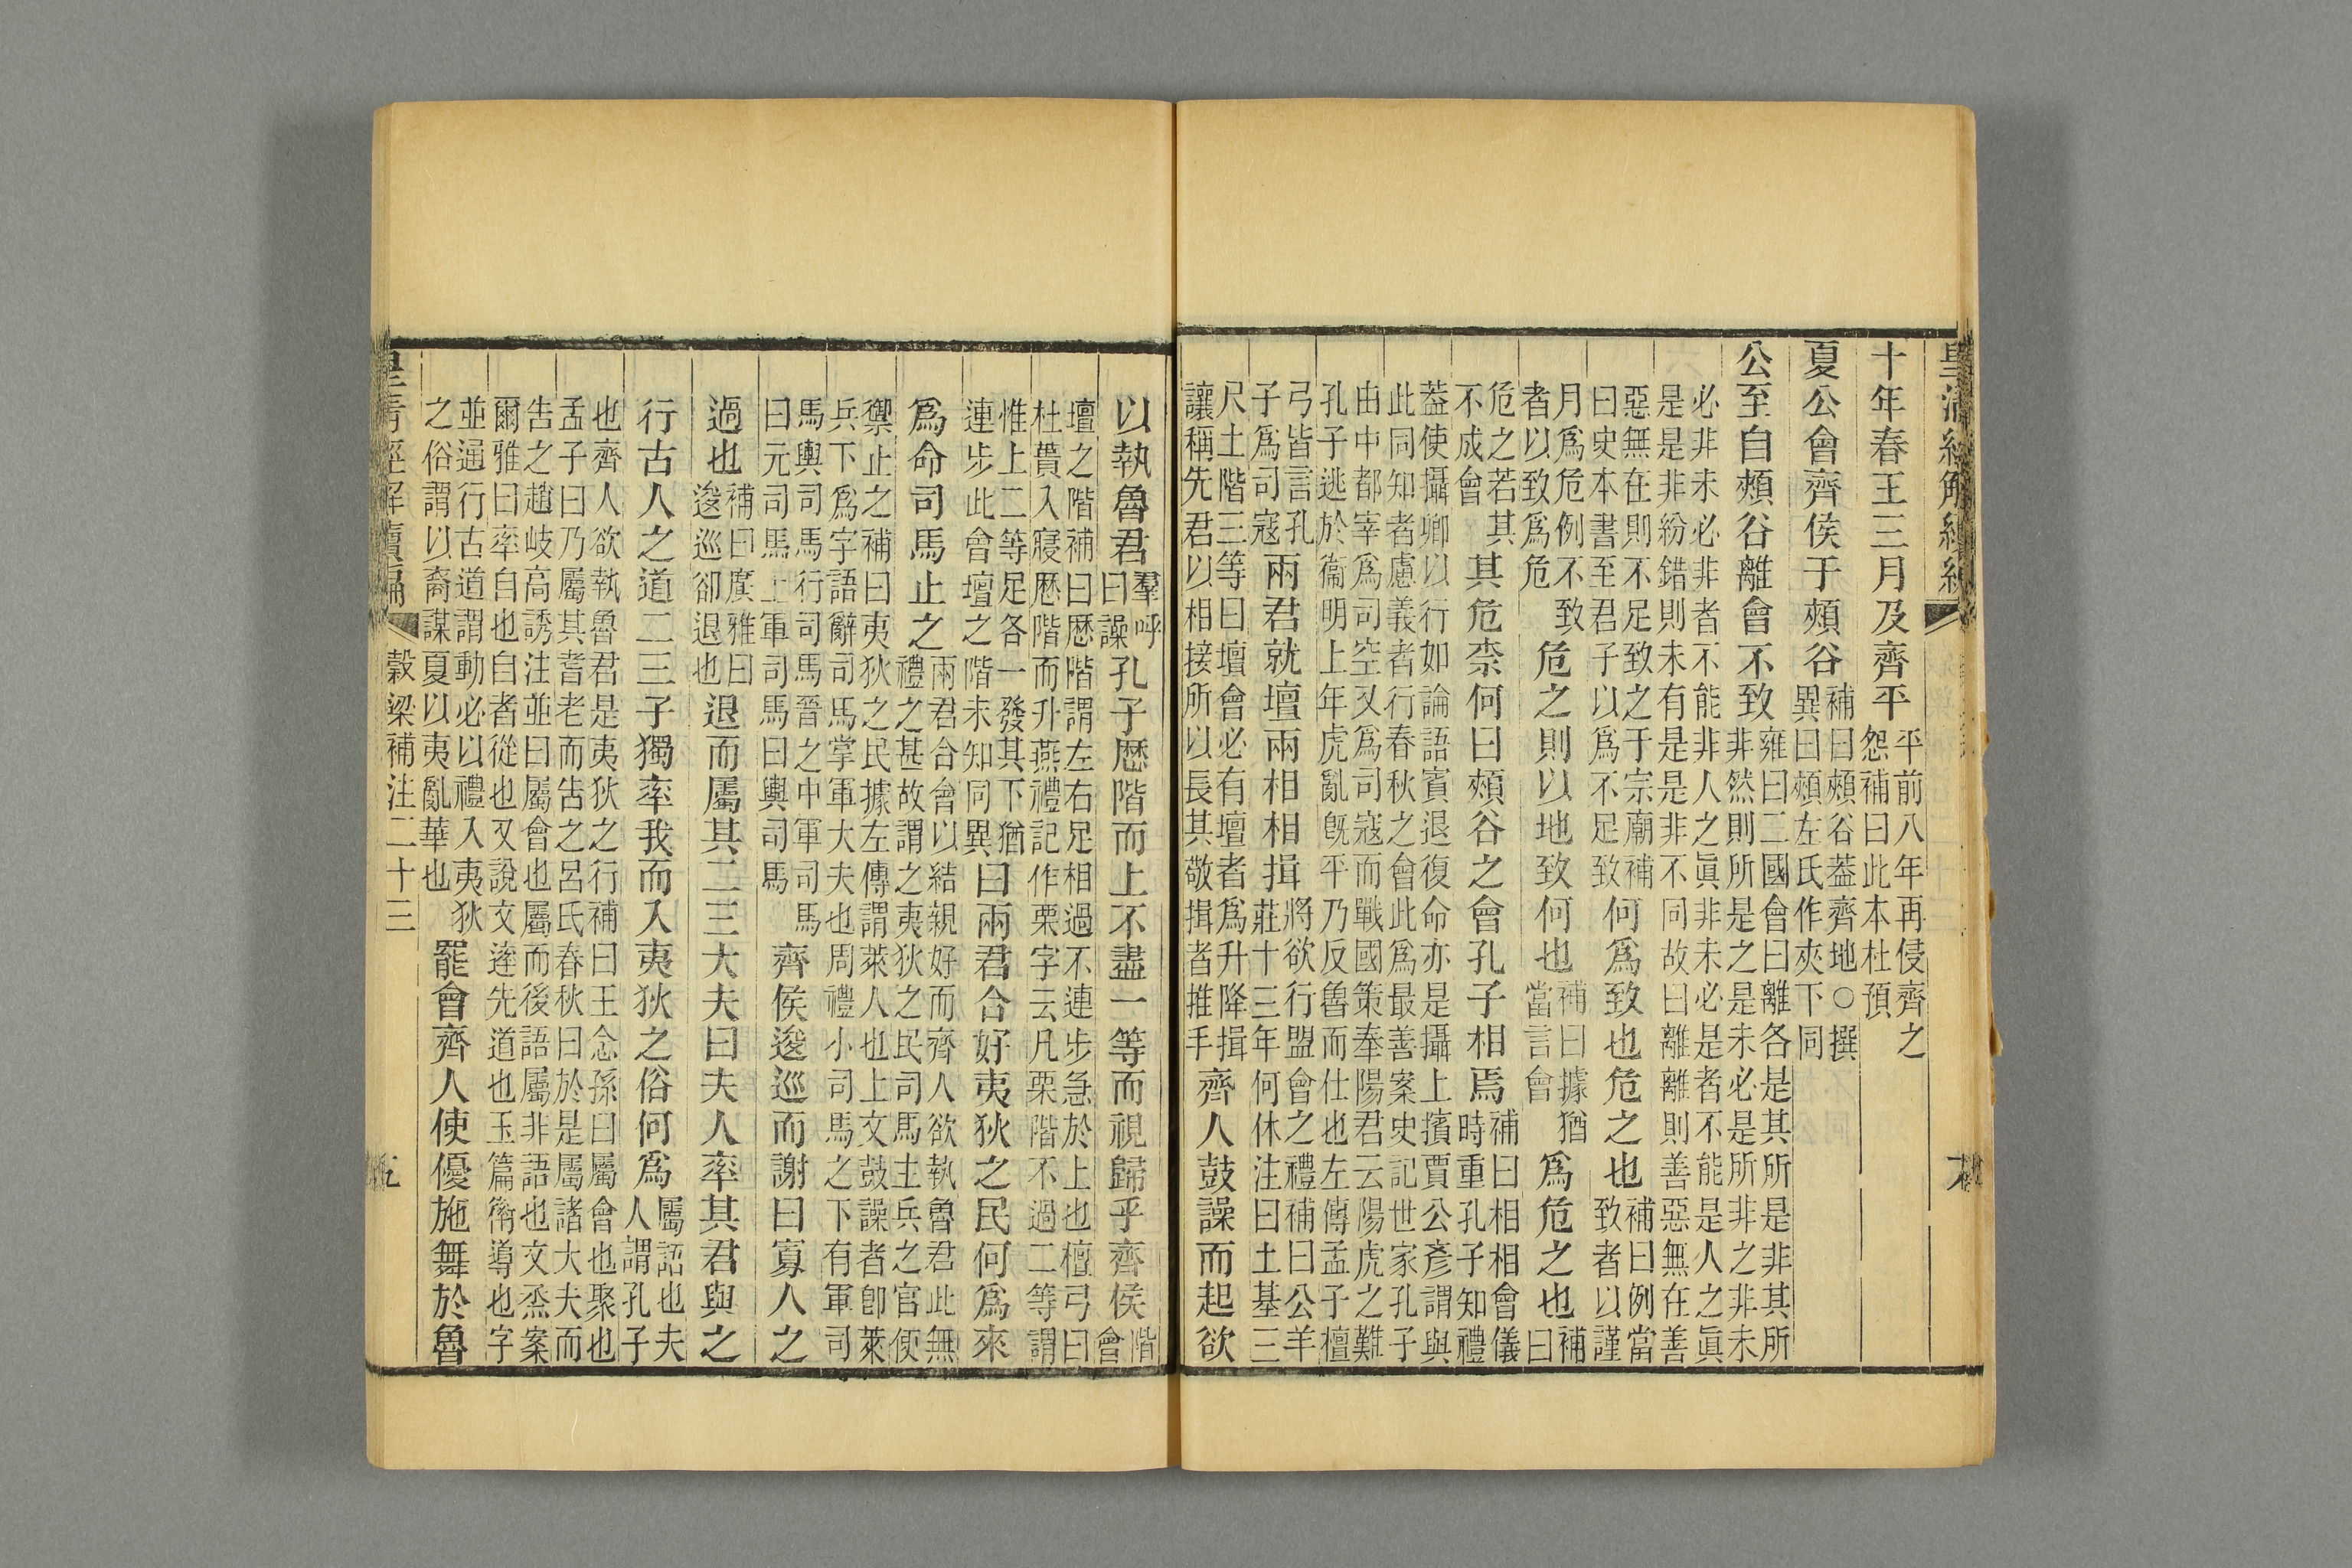 皇清經解續編
十年春王三月及齊平平前八年再侵齊之
怨補曰此本杜預
夏公會齊侯于頰谷補曰頰谷蓋齊地○撰
異曰頰左氏作夾下同
公至自頰谷離會不致雍曰二國會曰離各是其所是非其所
非然則所是之是未必是所非之非未
必非未必非者不能非人之眞非未必是者不能是人之眞
是是非非紛錯則未有是是非非不同故曰離離則善惡無在善
惡無在則不足致之于宗廟補
曰史本書至君子以爲不足致何爲致也危之也補曰例當
致者以謹
月爲危例不致
者以致爲危危之則以地致何也補曰據猶
當言會爲危之也補
曰
危之若其
不成會其危柰何曰頰谷之會孔子相焉補曰相相會儀
時重孔子知禮
蓋使攝卿以行如論語賓退復命亦是攝上擯賈公彥謂與
此同知者慮義者行春秋之會此爲最善案史記世家孔子
由中都宰爲司空又爲司寇而戰國策奉陽君云陽虎之難
孔子逃於衞明上年虎亂旣平乃反魯而仕也左傳孟子檀
弓皆言孔
子爲司寇兩君就壇兩相相揖將欲行盟會之禮補曰公羊
莊十三年何休注曰土基三
尺土階三等曰壇會必有壇者爲升降揖
讓稱先君以相接所以長其敬揖者推手齊人鼓譟而起欲
以執魯君羣呼
曰譟孔子歷階而上不盡一等而視歸乎齊侯階
會
壇之階補曰歷階謂左右足相過不連步急於上也檀弓曰
杜蕢入寢歷階而升燕禮記作栗字云凡栗階不過二等謂
惟上二等足各一發其下猶
連步此會壇之階未知同異曰兩君合好夷狄之民何爲來
爲命司馬止之兩君合會以結親好而齊人欲執魯君此無
禮之甚故謂之夷狄之民司馬主兵之官使
禦止之補曰夷狄之民據左傳謂萊人也上文鼓譟者卽萊
兵下爲字語辭司馬掌軍大夫也周禮小司馬之下有軍司
馬輿司馬行司馬晉之中軍司馬
曰元司馬上軍司馬曰輿司馬齊侯逡巡而謝曰寡人之
過也補曰廣雅曰
逡巡卻退也退而屬其二三大夫曰夫人率其君與之
行古人之道二三子獨率我而入夷狄之俗何爲屬語也夫
人謂孔子
也齊人欲執魯君是夷狄之行補曰王念孫曰屬會也聚也
孟子曰乃屬其耆老而告之呂氏春秋曰於是屬諸大夫而
告之趙岐高誘注並曰屬會也屬而後語屬非語也文烝案
爾雅曰率自也自者從也又說文先道也玉篇導也字
並通行古道謂動必以禮入夷狄
之俗謂以裔謀夏以夷亂華也罷會齊人使優施舞於魯
皇清經解續編 穀梁補注二十三 五